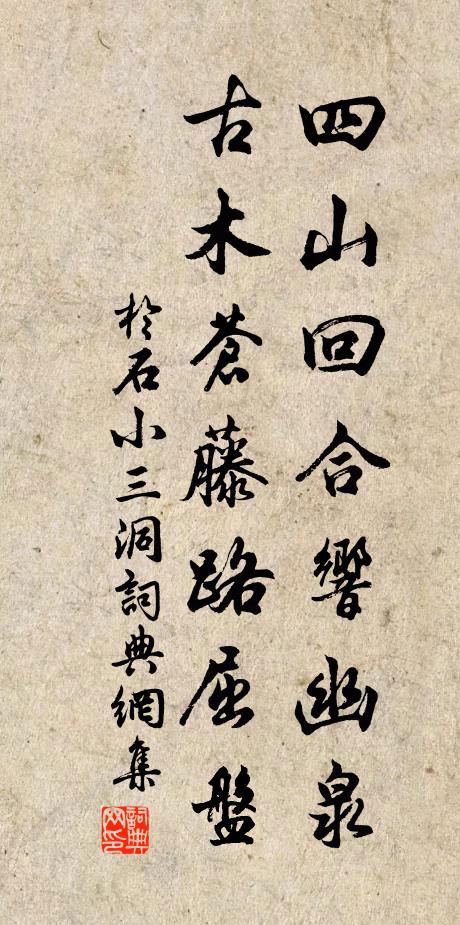 四山回合響幽泉
古木蒼藤路屈盤
於石小三洞詞典網集
詞典网印